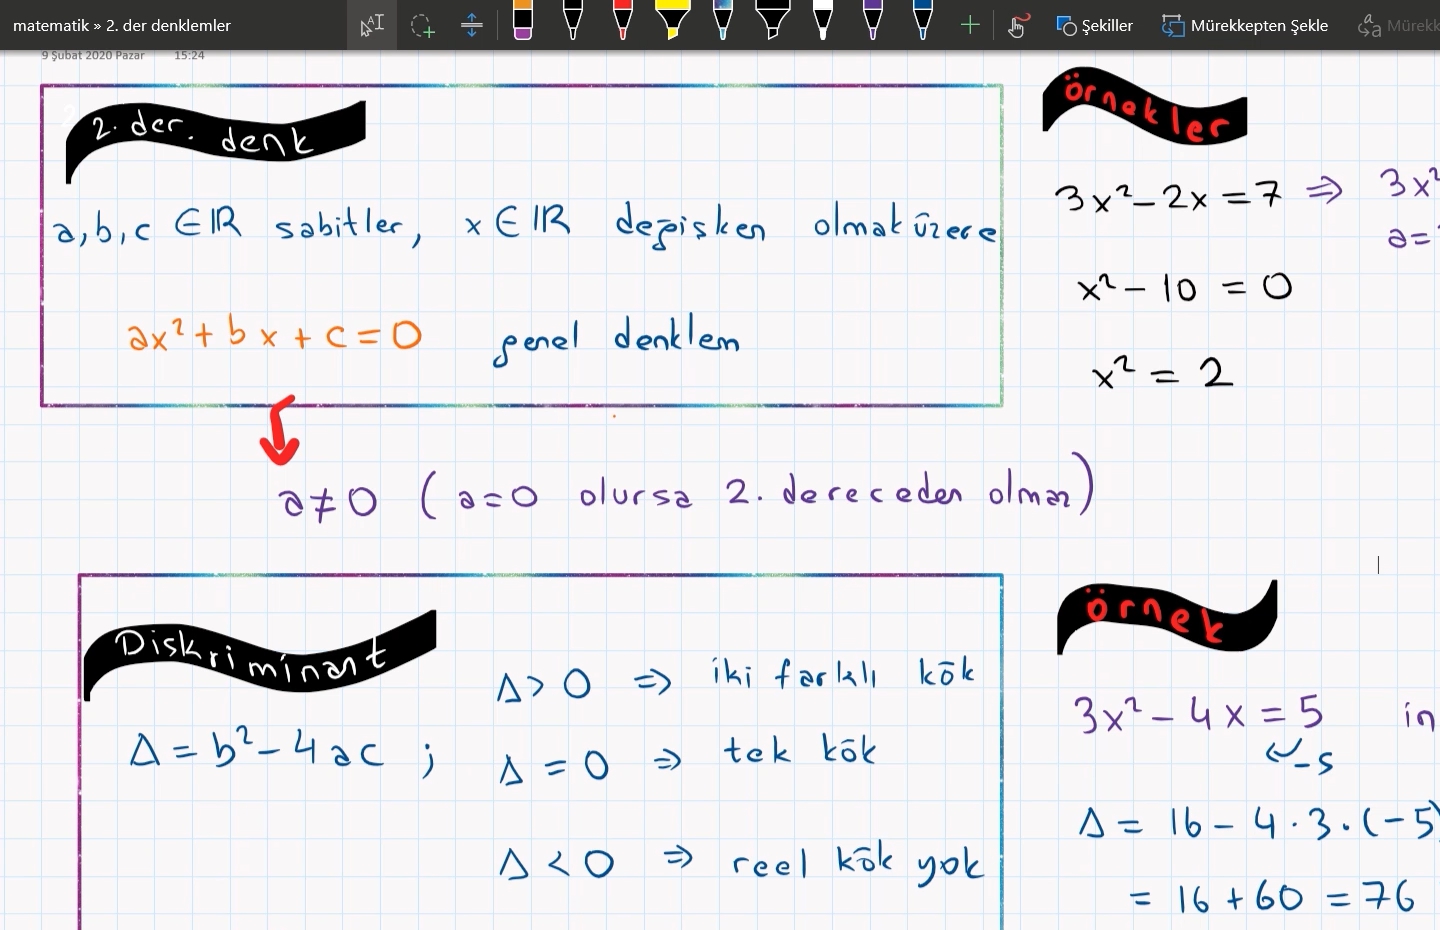 matematik » 2. der denklemler
Şekiller
Mürekkepten Şekle
Mürekk
9 Şubat 2020 Pazar 15:24
2. der. denk
a,b,c ∈ IR sabitler, x ∈ IR değişken olmak üzere
ax² + bx + c = 0 genel denklem
a ≠ 0 ( a = 0 olursa 2. dereceden olmaz)
örnekler
3x² - 2x = 7 ⇒ 3x²
a =
x² - 10 = 0
x² = 2
Diskriminant
Δ = b² - 4ac ;
Δ > 0 ⇒ iki farklı kök
Δ = 0 ⇒ tek kök
Δ < 0 ⇒ reel kök yok
örnek
3x² - 4x = 5 in
-5
Δ = 16 - 4 · 3 · (-5)
= 16 + 60 = 76